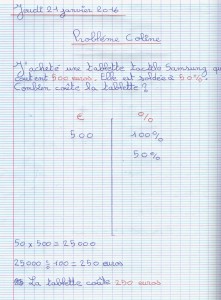 Jeudi 21 janvier 2016
Problème Coline
J'acheté une tablette tactile Samsung qui
coutent 500 euros. Elle est soldée à 50%.
Combien coûte la tablette ?
€ %
500 100%
50%
50 x 500 = 25000
25000 : 100 = 250 euros
La tablette coûte 250 euros